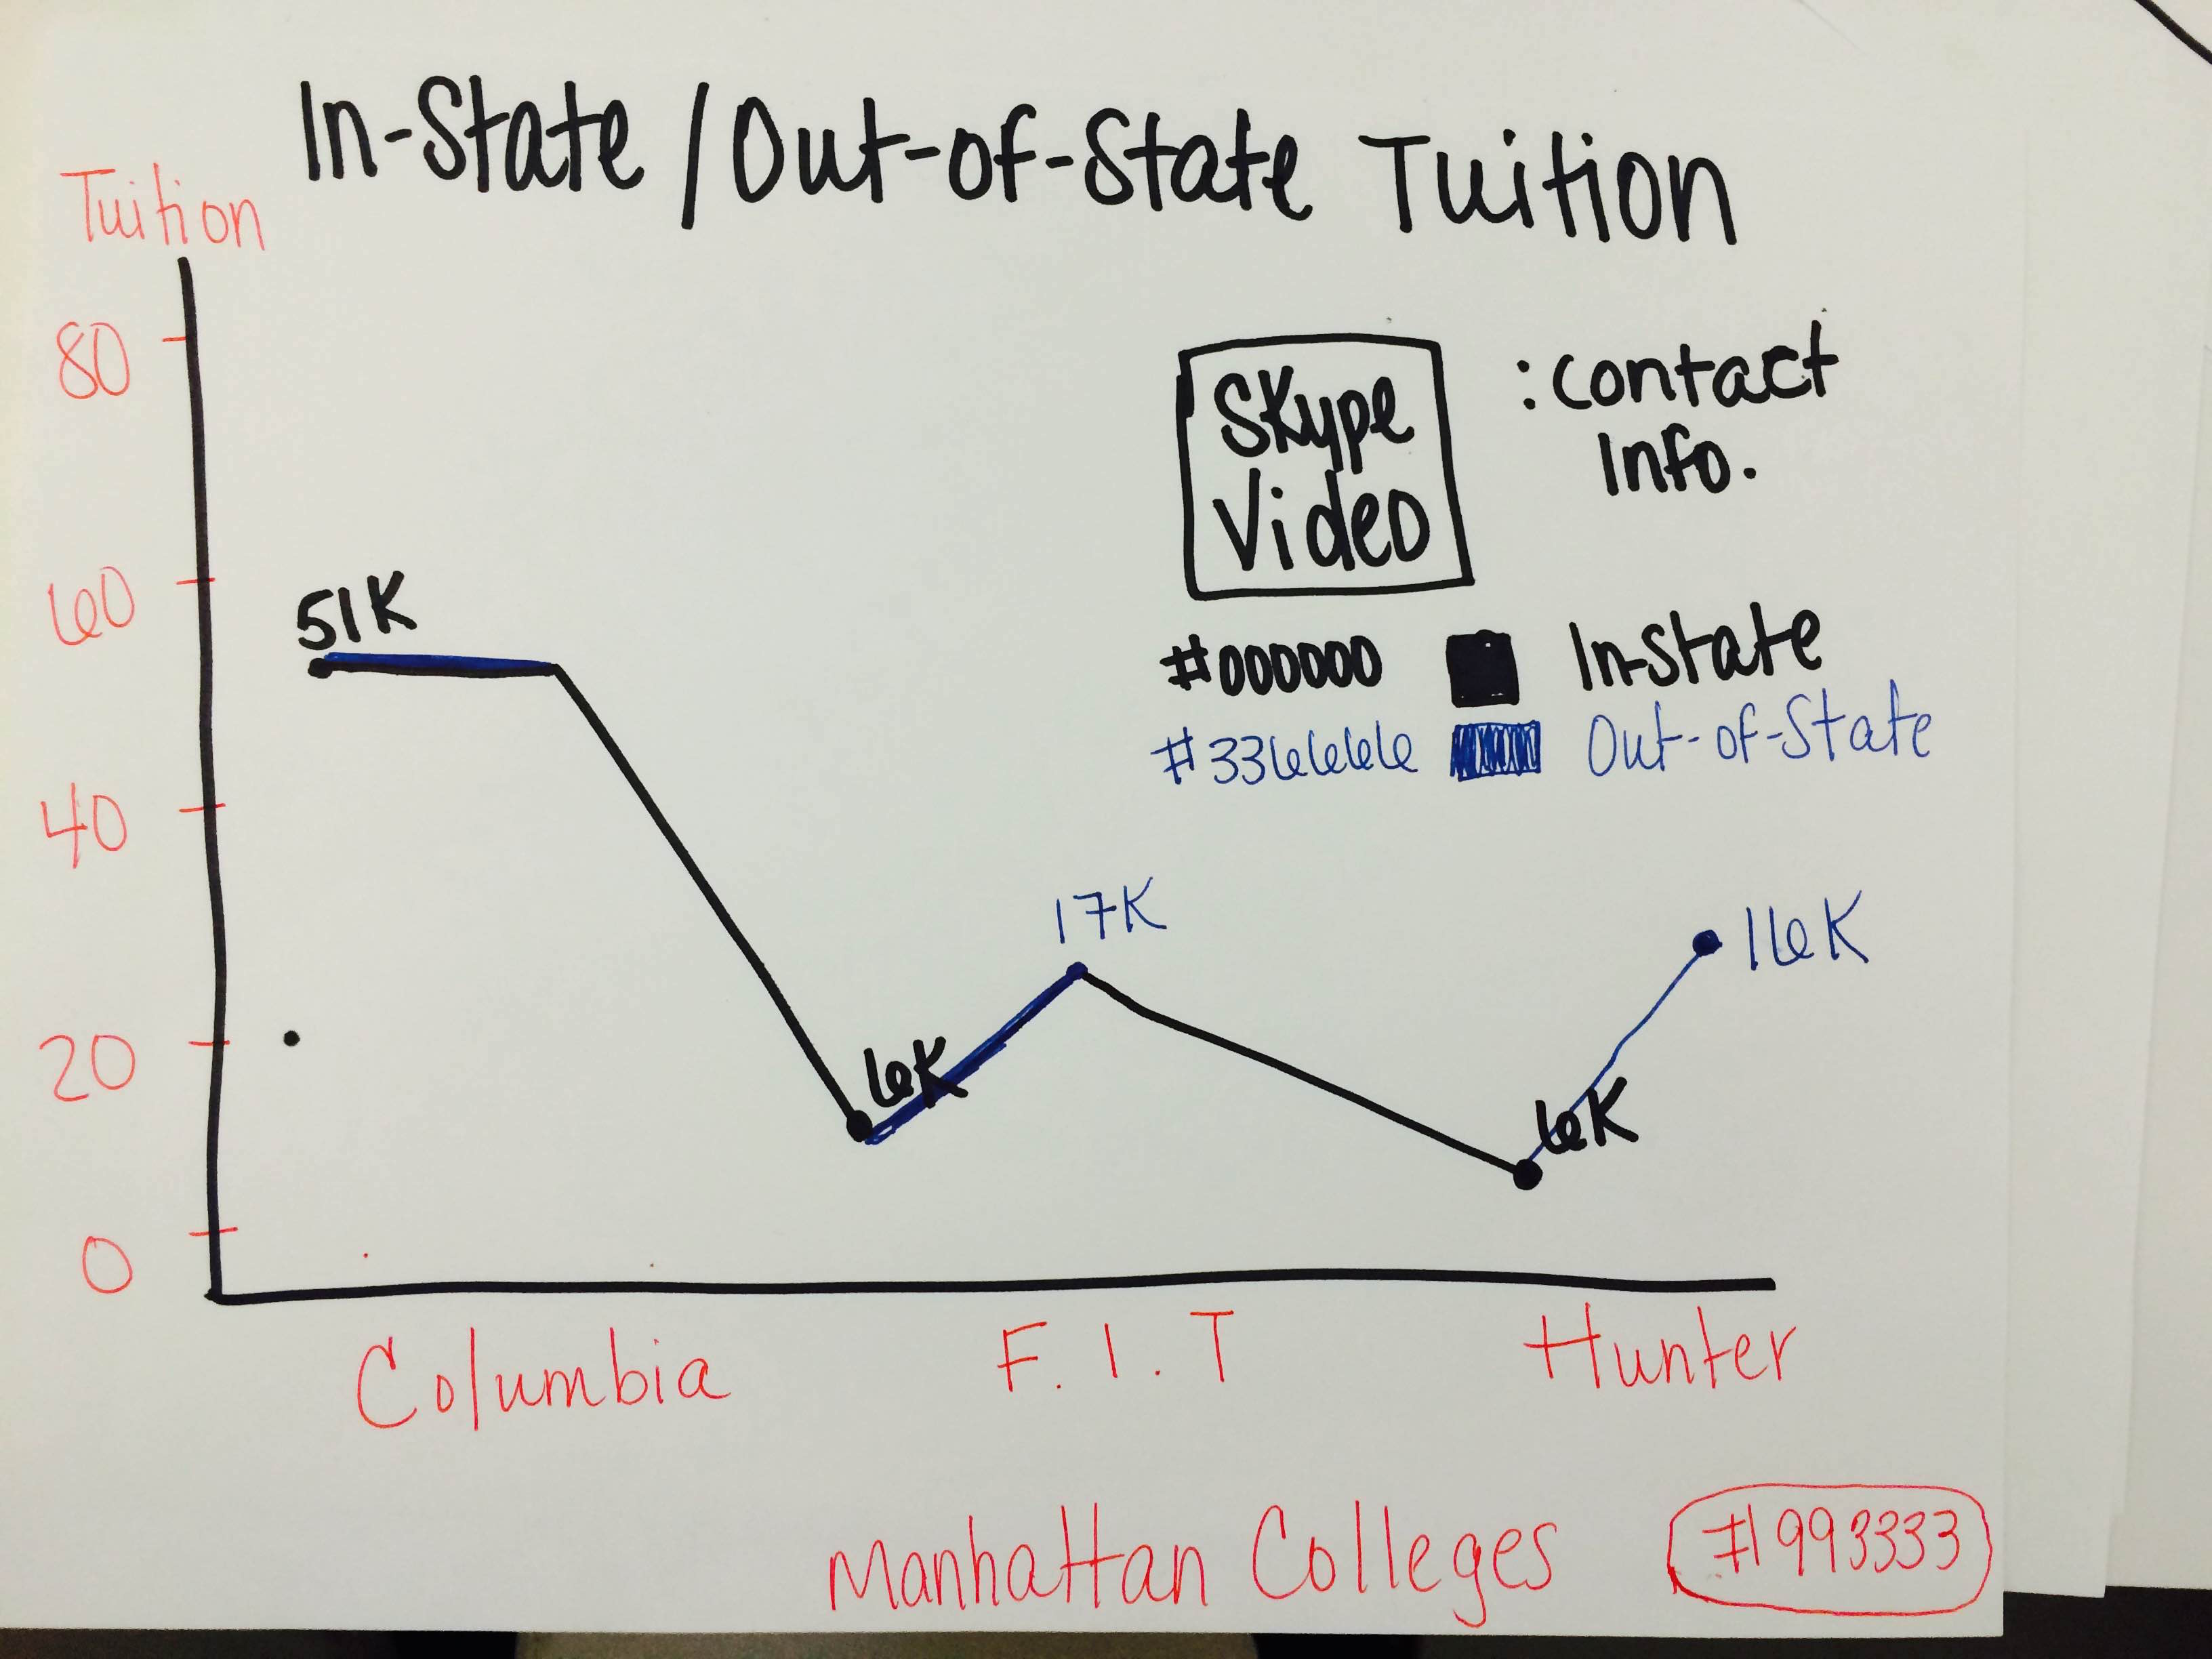 In-State / Out-of-State Tuition
Tuition
80
60
40
20
0
Skype
Video
: Contact
Info.
#000000 In-State
#336666 Out-of-State
51K
6K
17K
6K
16K
Columbia F.I.T Hunter
Manhattan Colleges #993333